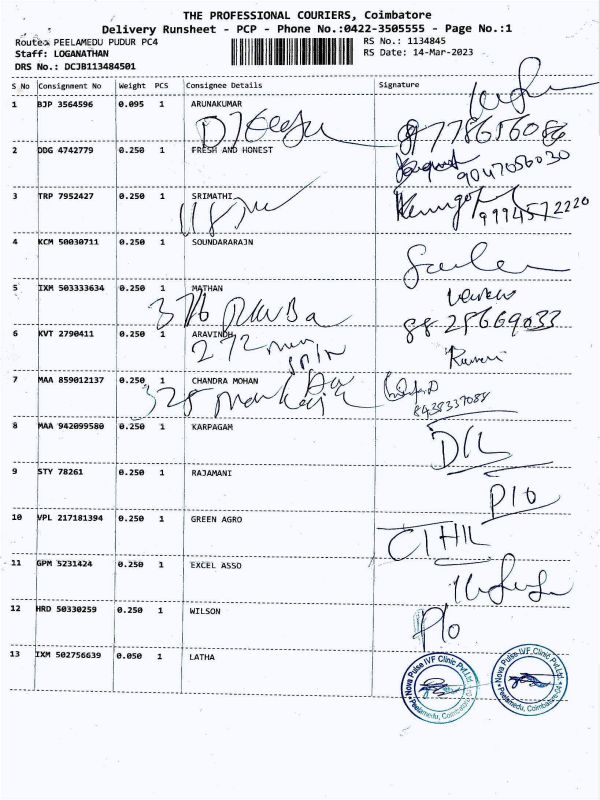 THE PROFESSIONAL COURIERS, Coimbatore
Delivery Runsheet - PCP - Phone No.:0422-3505555 - Page No.:1
Route: PEELAMEDU PUDUR PC4
RS No.: 1134845
Staff: LOGANATHAN
RS Date: 14-Mar-2023
DRS No.: DCJB113484501
S No Consignment No Weight PCS Consignee Details Signature
1 BJP 3564596 0.095 1 ARUNAKUMAR
778656086
2 DDG 4742779 0.250 1 FRESH AND HONEST
9047056030
3 TRP 7952427 0.250 1 SRIMATHI
9994572220
4 KCM 50030711 0.250 1 SOUNDARARAJN
5 IXM 503333634 0.250 1 MATHAN
376
8825669033
6 KVT 2790411 0.250 1 ARAVINDH
272
7 MAA 859012137 0.250 1 CHANDRA MOHAN
325
8438337088
8 MAA 942099580 0.250 1 KARPAGAM
D/L
9 STY 78261 0.250 1 RAJAMANI
P10
10 VPL 217181394 0.250 1 GREEN AGRO
11 GPM 5231424 0.250 1 EXCEL ASSO
12 HRD 50330259 0.250 1 WILSON
P/o
13 IXM 502756639 0.050 1 LATHA
Nova Pulse IVF Clinic Pvt.Ltd.
Peelamedu, Coimbatore
Nova Pulse IVF Clinic Pvt.Ltd.
Peelamedu, Coimbatore-04